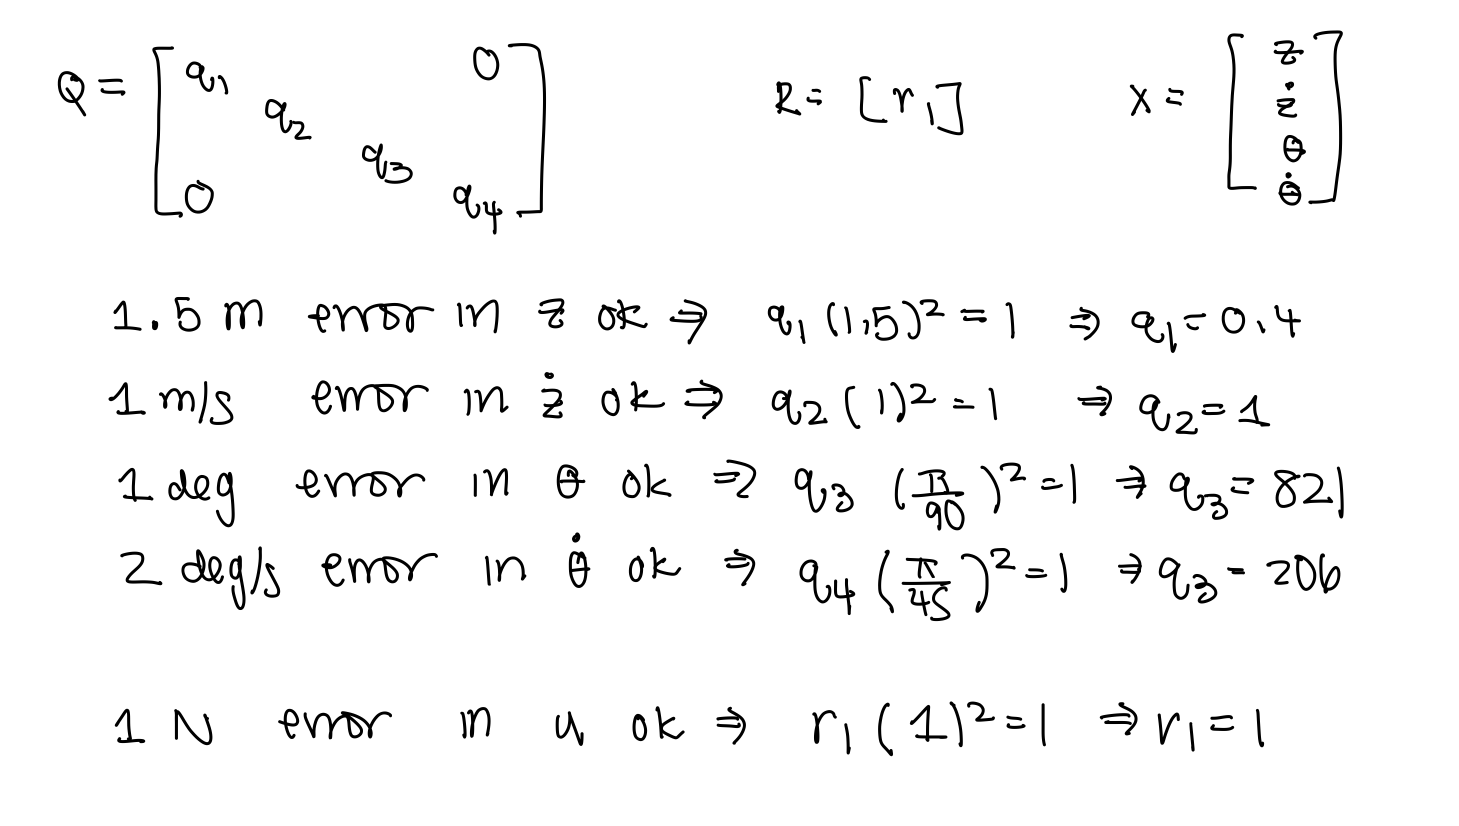 Q = [q₁ 0 q₂ q₃ 0 q₄] R = [r₁] x = [z ż θ θ̇]
1.5 m error in z ok ⇒ q₁ (1.5)² = 1 ⇒ q₁ = 0.4
1 m/s error in ż ok ⇒ q₂ (1)² = 1 ⇒ q₂ = 1
1 deg error in θ ok ⇒ q₃ (π/90)² = 1 ⇒ q₃ = 821
2 deg/s error in θ̇ ok ⇒ q₄ (π/45)² = 1 ⇒ q₃ = 206
1 N error in u ok ⇒ r₁ (1)² = 1 ⇒ r₁ = 1